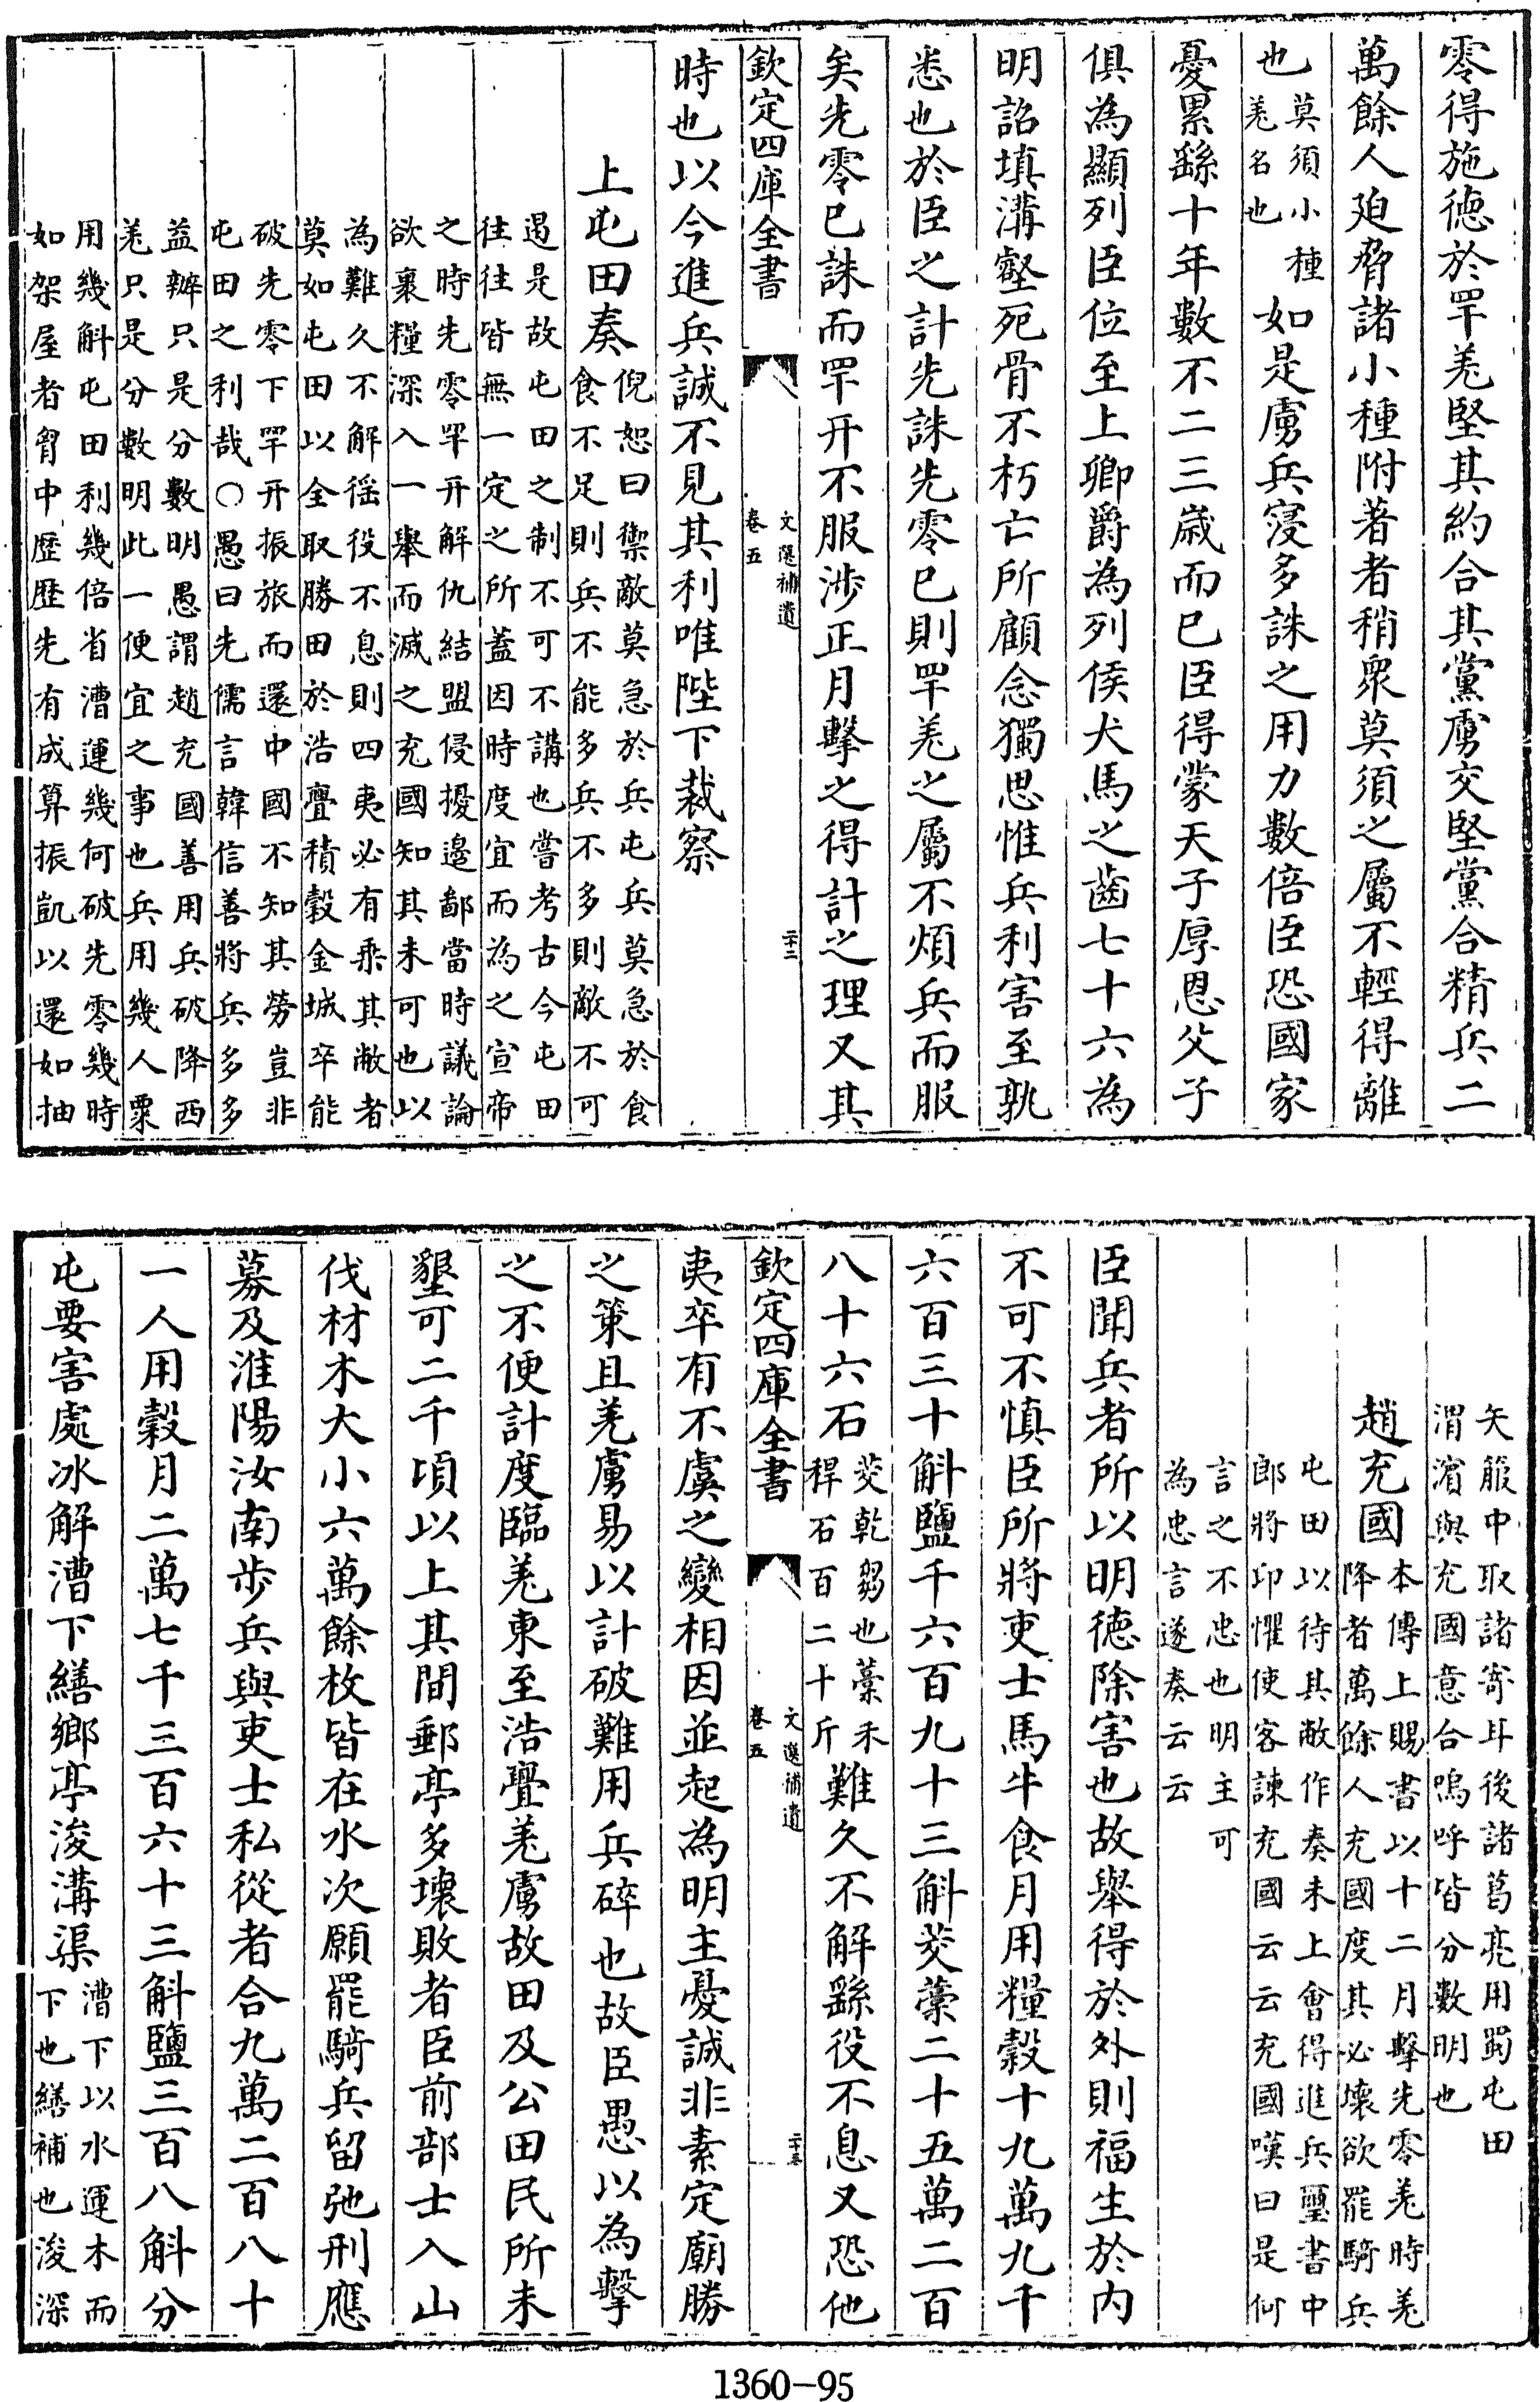 零得施徳於罕羌堅其約合其黨虜交堅黨合精兵二
萬餘人廹脅諸小種附著者稍衆莫須之屬不輕得離
也莫須小種
羌名也
如是虜兵寖多誅之用力數倍臣恐國家
憂累繇十年數不二三嵗而已臣得蒙天子厚恩父子
俱為顯列臣位至上卿爵為列侯犬馬之齒七十六為
明詔填溝壑死骨不朽亡所顧念獨思惟兵利害至孰
悉也於臣之計先誅先零已則罕羌之屬不煩兵而服
矣先零已誅而罕开不服渉正月擊之得計之理又其
欽定四庫全書
文選補遺
卷五
二十三
時也以今進兵誠不見其利唯陛下裁察
上屯田奏
倪恕曰禦敵莫急於兵屯兵莫急於食
食不足則兵不能多兵不多則敵不可
遏是故屯田之制不可不講也嘗考古今屯田
往往皆無一定之所蓋因時度宜而為之宣帝
之時先零罕开解仇結盟侵擾邉鄙當時議論
欲裹糧深入一舉而滅之充國知其未可也以
為難久不解徭役不息則四夷必有乘其敝者
莫如屯田以全取勝田於浩亹積穀金城卒能
破先零下罕开振旅而還中國不知其勞豈非
屯田之利哉○愚曰先儒言韓信善將兵多多
益辦只是分數明愚謂趙充國善用兵破降西
羌只是分數明此一便宜之事也兵用幾人粟
用幾斛屯田利幾倍省漕運幾何破先零幾時
如架屋者胷中歴歴先有成算振凱以還如抽
矢箙中取諸寄耳後諸葛亮用蜀屯田
渭濵與充國意合嗚呼皆分數明也
趙充國
本傳上賜書以十二月擊先零羌時羌
降者萬餘人充國度其必壞欲罷騎兵
屯田以待其敝作奏未上會得進兵璽書中
郎將卬懼使客諫充國云云充國嘆曰是何
言之不忠也明主可
為忠言遂奏云云
臣聞兵者所以明徳除害也故舉得於外則福生於内
不可不慎臣所將吏士馬牛食月用糧榖十九萬九千
六百三十斛鹽千六百九十三斛茭藁二十五萬二百
八十六石
茭乾芻也藁禾
稈石百二十斤
難久不解繇役不息又恐他
欽定四庫全書
文選補遺
卷五
夷卒有不虞之變相因並起為明主憂誠非素定廟勝
之策且羌虜易以計破難用兵碎也故臣愚以為擊
之不便計度臨羌東至浩亹羌虜故田及公田民所未
墾可二千頃以上其間郵亭多壞敗者臣前部士入山
伐材木大小六萬餘枚皆在水次願罷騎兵留弛刑應
募及淮陽汝南步兵與吏士私從者合九萬二百八十
一人用榖月二萬七千三百六十三斛鹽三百八斛分
屯要害處冰解漕下繕鄉亭浚溝渠
漕下以水運木而
下也繕補也浚深
1360-95